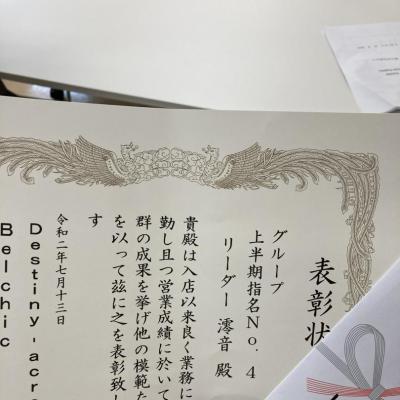 表彰状
グループ
上半期指名No.4
リーダー 澪音 殿
貴殿は入店以来良く業務に
勤し且つ営業成績に於いて
群の成果を挙げ他の模範た
を以って茲に之を表彰致し
す
令和二年七月十三日
Destiny-acro
Belchic